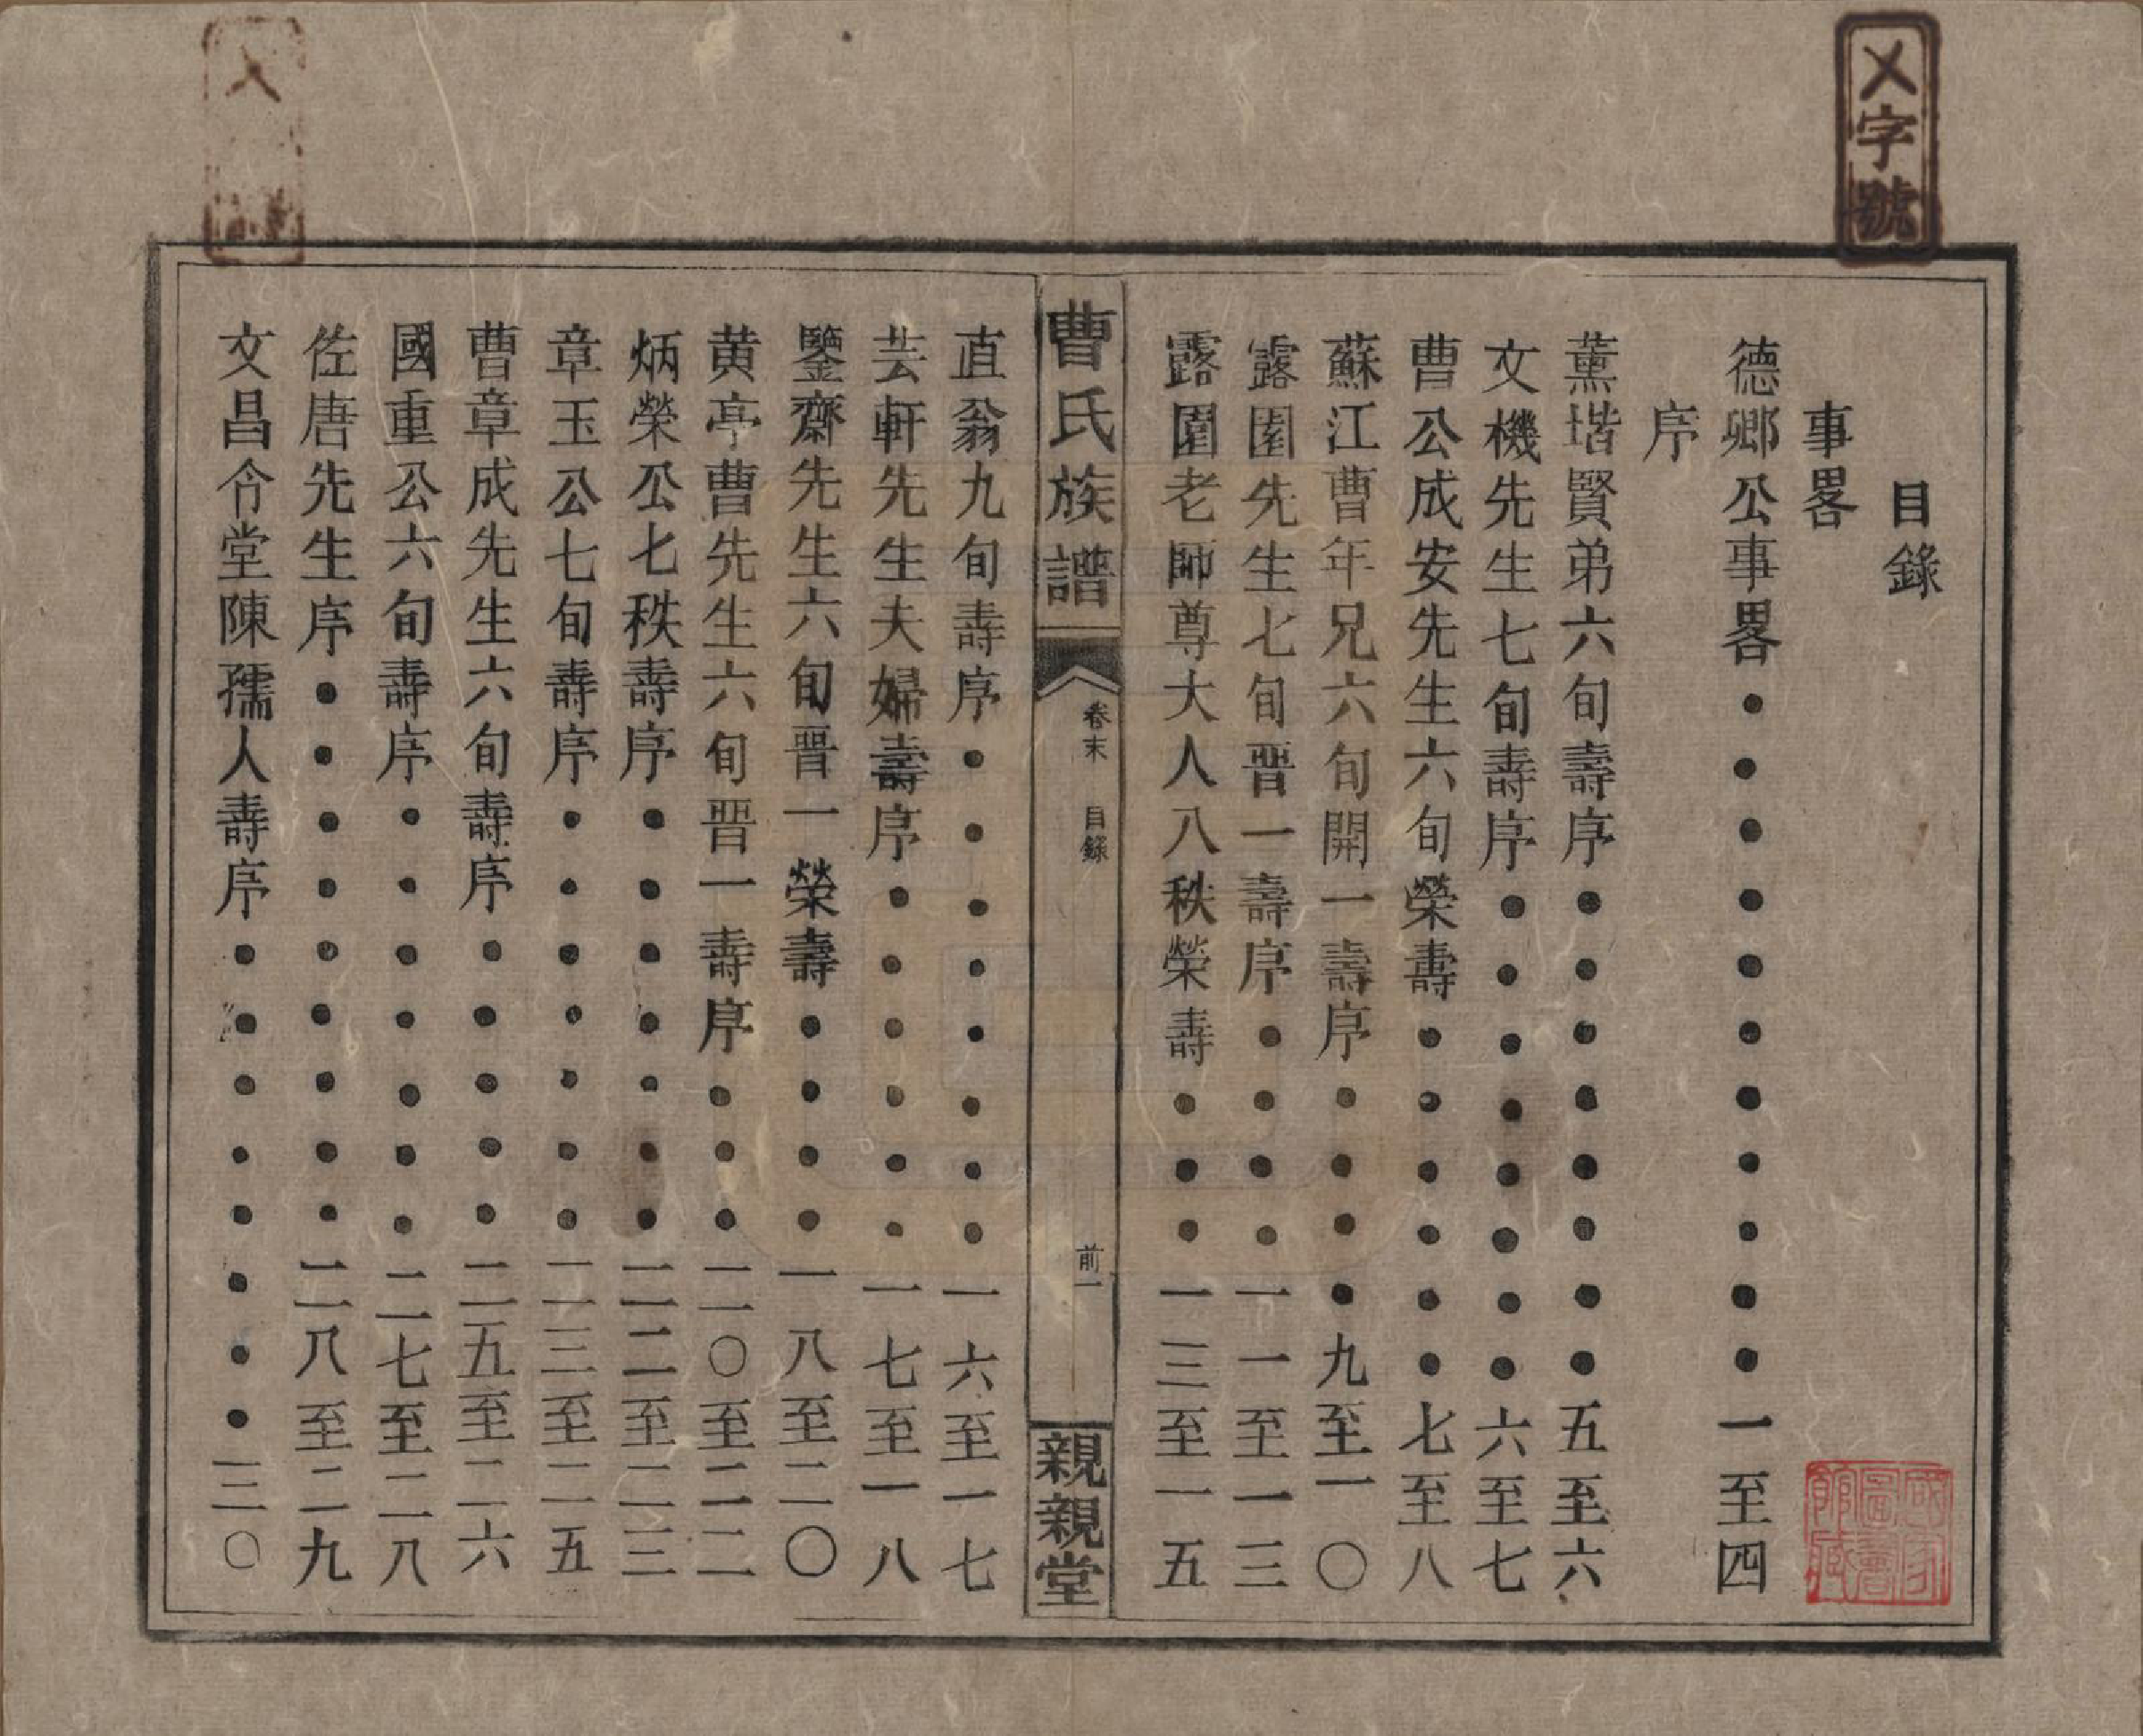 乂字號
目錄
事畧
德鄉公事畧・・・・・・・・・・・一至四
序
薰堦賢弟六旬壽序・・・・・・・・五至六
文機先生七旬壽序・・・・・・・・六至七
曹公成安先生六旬榮壽・・・・・・七至八
蘇江曹年兄六旬開一壽序・・・・九至一〇
露園先生七旬晋一壽序・・・・一一至一三
露園老師尊大人八秩榮壽・・・一三至一五
曹氏族譜
卷末 目錄
前一
親親堂
直翁九旬壽序・・・・・・・・一六至一七
芸軒先生夫婦壽序・・・・・・一七至一八
鑒齋先生六旬晋一榮壽・・・・一八至二〇
黄亭曹先生六旬晋一壽序・・・二〇至二二
炳榮公七秩壽序・・・・・・・二二至二三
章玉公七旬壽序・・・・・・・二三至二五
曹章成先生六旬壽序・・・・・二五至二六
國重公六旬壽序・・・・・・・二七至二八
佐唐先生序・・・・・・・・・二八至二九
文昌令堂陳孺人壽序・・・・・・・・三〇
國家圖書館藏